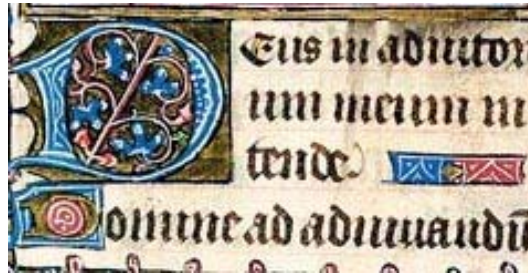 Deus in adiutor
ium meum in
tende
Domine ad adiuuandū